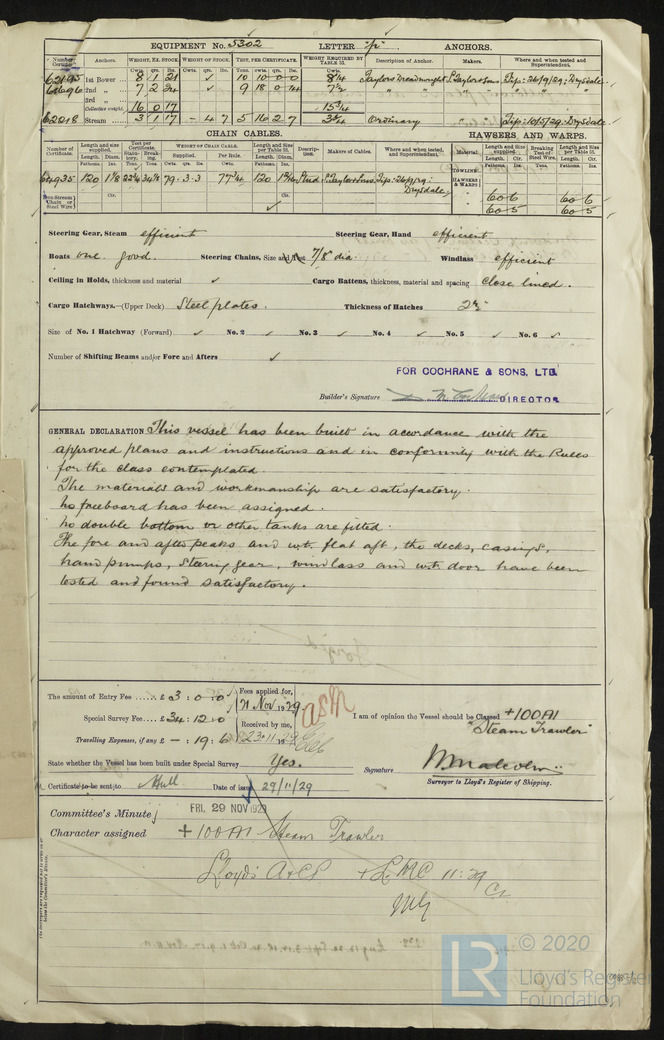 EQUIPMENT No. 5302 LETTER "p" ANCHORS.
Number of Certificate. Anchors. WEIGHT, EX. STOCK. WEIGHT OF STOCK. TEST, PER CERTIFICATE. WEIGHT REQUIRED BY TABLE 53. Description of Anchor. Makers. Where and when tested and Superintendent.
Cwts. qrs. lbs. Cwts. qrs. lbs. Tons. cwts. qrs. lbs. Cwts.
62195 1st Bower .. 8 1 21 ✓ 10 10 0 0 8¼ Taylors Dreadnought S. Taylor & Sons. Tip: 26/9/29; Drysdale.
2nd „ .. 7 2 24 ✓ 9 18 0 14 7½ " " " " " "
3rd „ ..
Collective weight. 16 0 17 15¾
62018 Stream ... 3 1 17 - 4 7 5 16 2 7 3¾ Ordinary " " Tip: 10/5/29: Drysdale.
CHAIN CABLES. HAWSERS AND WARPS.
Number of Certificate. Length and size supplied. Test per Certificate. WEIGHT OF CHAIN CABLE. Length and size per Table 53. Description. Makers of Cables. Where and when tested, and Superintendent. Material. Length and size supplied. Breaking Test of Steel Wire. Length and size per Table 53.
Length. Diam. Statutory. Breaking. Supplied. Per Rule. Length. Diam. Length. Cir. Length. Cir.
Fathoms. Ins. Tons. Tons. Cwts. qrs. lbs. Cwts. Fathoms. Ins. Fathoms. Ins. Tons. Fathoms. Ins.
TOWLINE
120 1⅛ 22¾ 34⅛ 79.3.3 77¾ 120 1⅛ Stud S. Taylor & Sons Tip: 26/9/29: HAWSERS & WARPS
Drysdale.
Stream Chain or Steel Wire Cir. ✓ Cir. 60 6 60 6
60 5 60 5
Steering Gear, Steam efficient Steering Gear, Hand efficient
Boats one good. Steering Chains, Size and Test 7/8" dia. Windlass efficient
Ceiling in Holds, thickness and material ✓ Cargo Battens, thickness, material and spacing close lined.
Cargo Hatchways.—(Upper Deck) Steel plates. Thickness of Hatches 2½"
Size of No. 1 Hatchway (Forward) ✓ No. 2 ✓ No. 3 ✓ No. 4 ✓ No. 5 ✓ No. 6 ✓
Number of Shifting Beams and/or Fore and Afters ✓
FOR COCHRANE & SONS, LTD.
Builder's Signature DIRECTOR
GENERAL DECLARATION This vessel has been built in accordance with the
approved plans and instructions and in conformity with the Rules
for the class contemplated.
The materials and workmanship are satisfactory.
No freeboard has been assigned.
No double bottom or other tanks are fitted.
The fore and after peaks and wt. flat aft, the decks, casings,
hand pumps, steering gear, windlass and wt. door have been
tested and found satisfactory.
The amount of Entry Fee ..... £ 3 : 0 : 0 Fees applied for,
21 Nov. 1929
Special Survey Fee.... £ 34 : 12 : 0 I am of opinion the Vessel should be Classed +100A1
Received by me, "Steam Trawler"
Travelling Expenses, if any £ — : 19 : 6 23.11.1929
State whether the Vessel has been built under Special Survey Yes. Signature W Malcolm
Surveyor to Lloyd's Register of Shipping.
Certificate to be sent to Hull Date of issue 27/11/29
Committee's Minute FRI. 29 NOV 1929
Character assigned +100A1 Steam Trawler
Lloyd's A&CP +LMC 11:29
LR © 2020
Lloyd's Register
Foundation